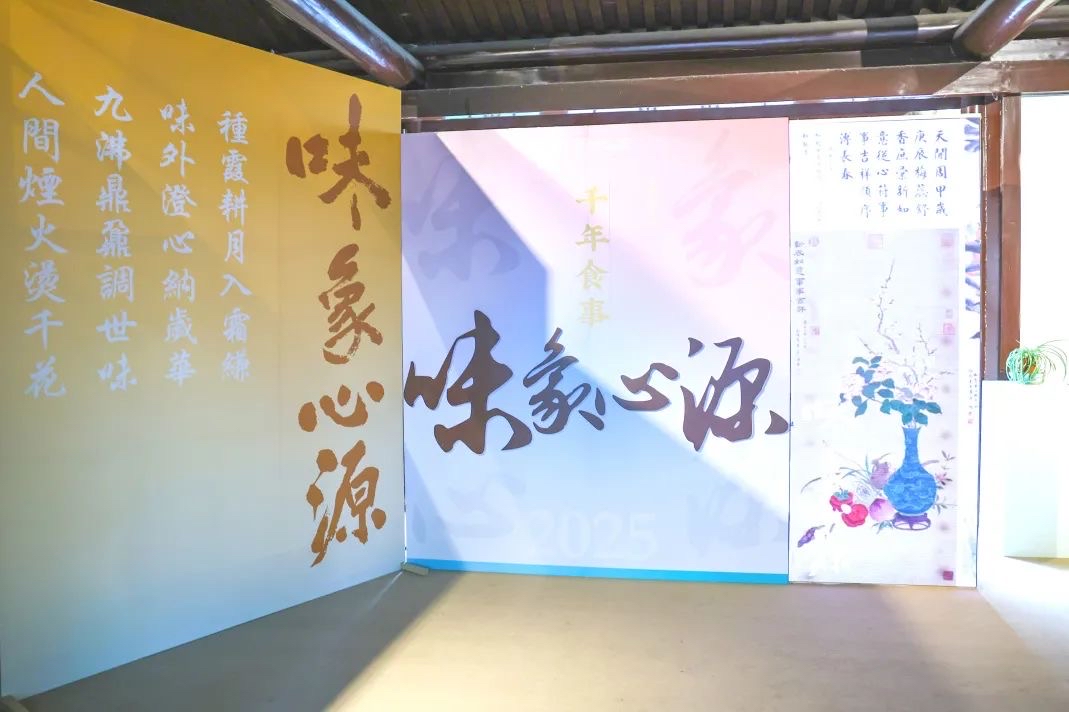 味象心源
種霞耕月入霜縑
味外澄心納歲華
九沸鼎鼐調世味
人間煙火燙千花
千年食事
味象心源
2025
天開周甲歲
庚辰梅蕊舒
香庶彙新如
意從心符事
事吉祥序
傳長春